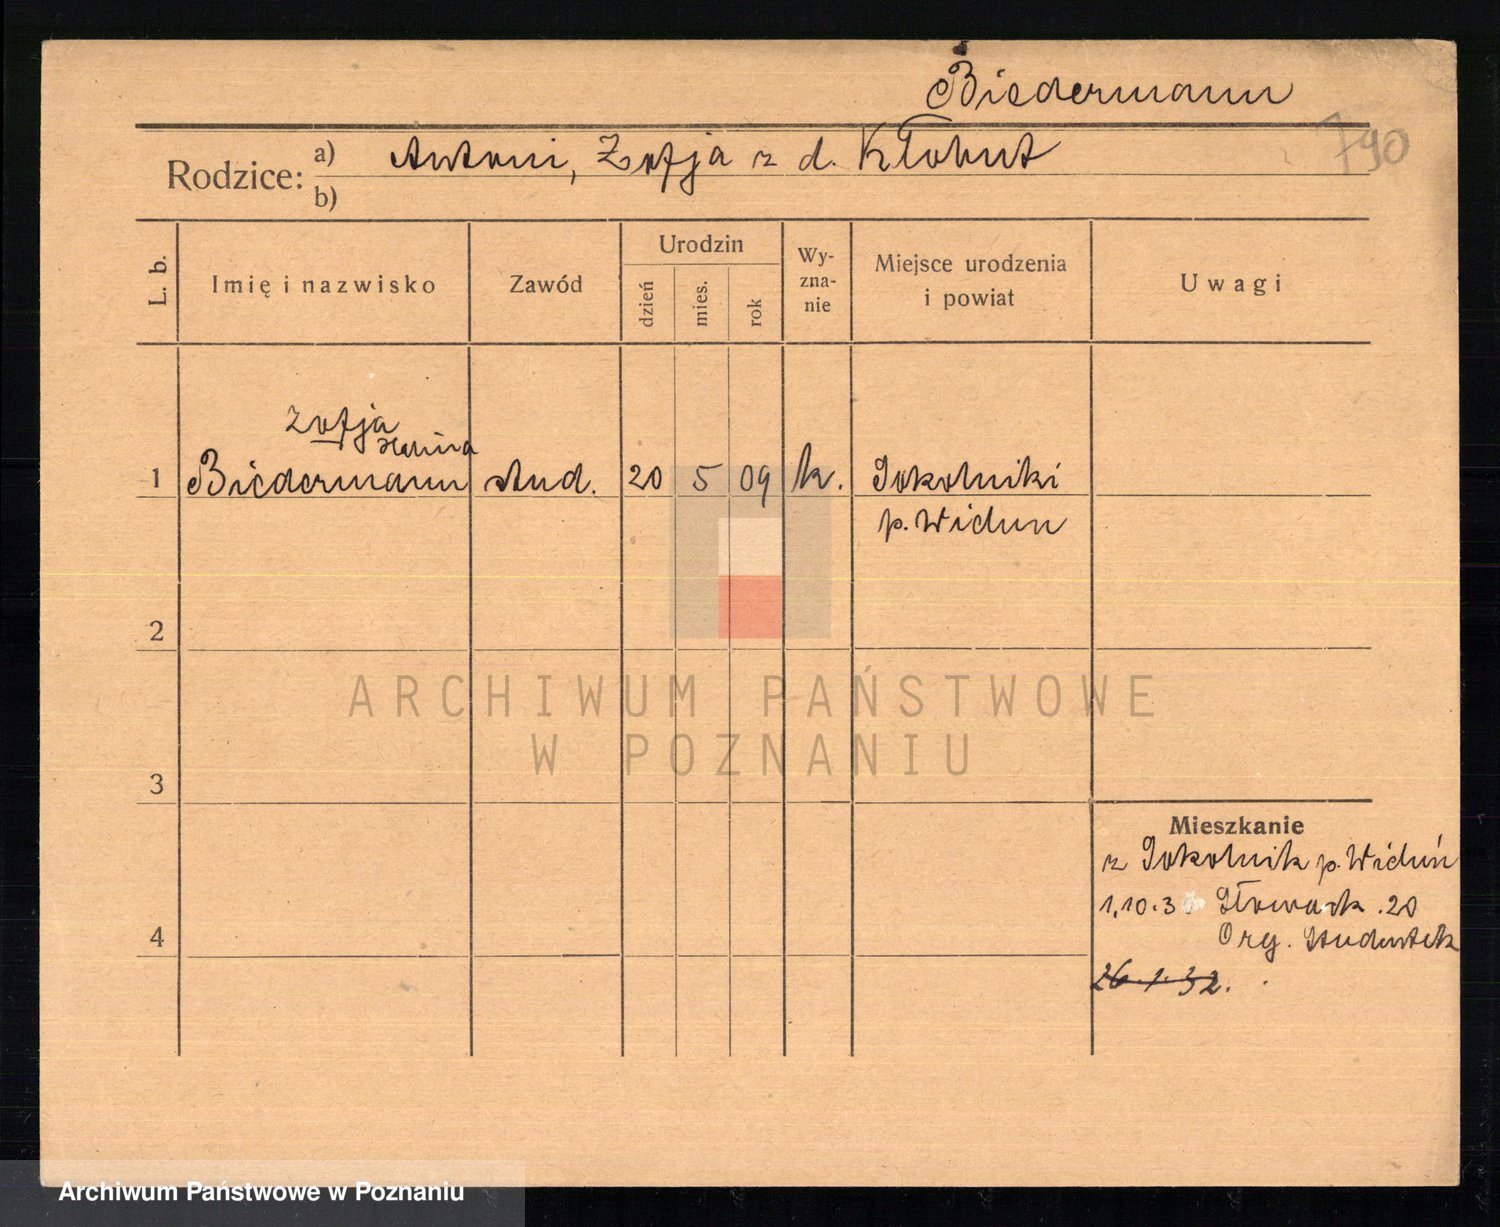 Biedermann
790
Rodzice: a) Antoni, Zofja z d. Kłobut
b)
L. b.
Imię i nazwisko
Zawód
Urodzin
dzień
mies.
rok
Wy-
zna-
nie
Miejsce urodzenia
i powiat
Uwagi
Zofja
Hanina
1 Biedermann stud. 20 5 09 k. Sokolniki
p. Wieluń
2
3
4
Mieszkanie
z Sokolnik p. Wieluń
1.10.3 20
Org. Studentek
26.1.32.
ARCHIWUM PAŃSTWOWE
W POZNANIU
Archiwum Państwowe w Poznaniu